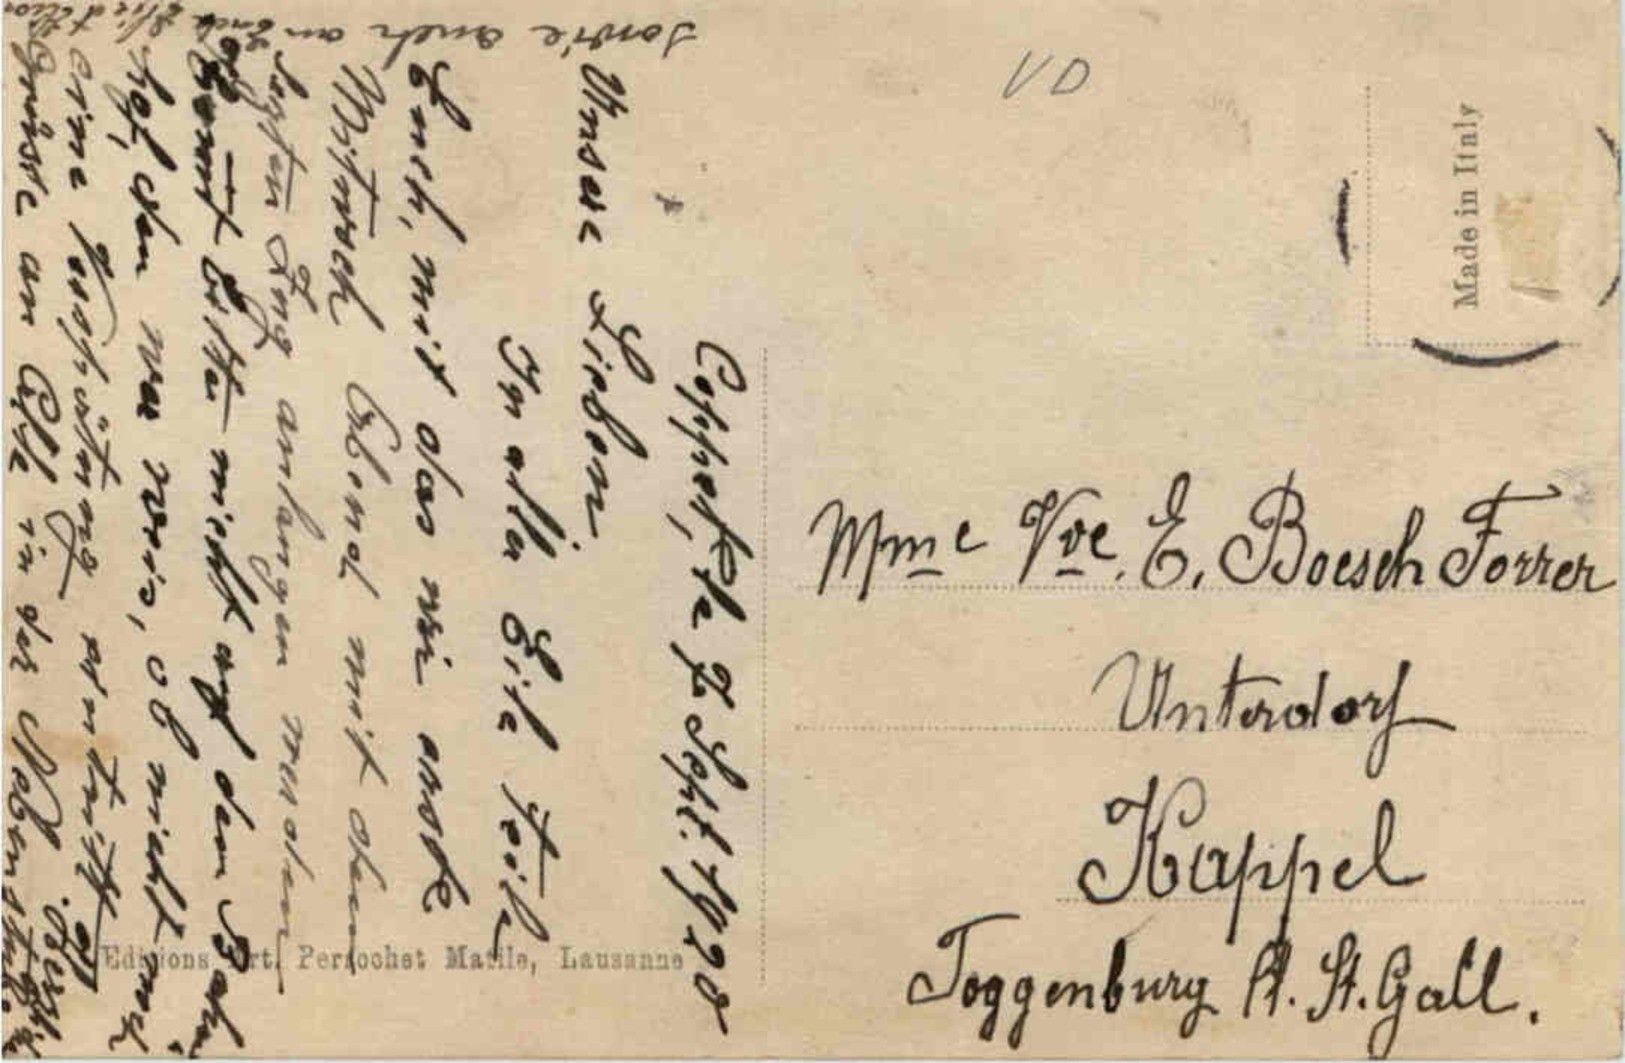 Coppet, de 7 Sept. 1920
Unsere Lieben
In aller Eile teile
Euch, mit das wir erst
Mittwoch Abend mit dem
letzten Zug anlangen werden
kommt bitte nicht auf den Bahn,
hof, den wer weis, ob nicht noch
eine Verspätung eintritt
Grüsse an Alle in der
sowie auch an
VD
Made in Italy
Mme Vve. E. Boesch Forrer
Unterdorf
Kappel
Toggenburg Kt. St. Gall.
Editions Art. Perrochet Matile, Lausanne